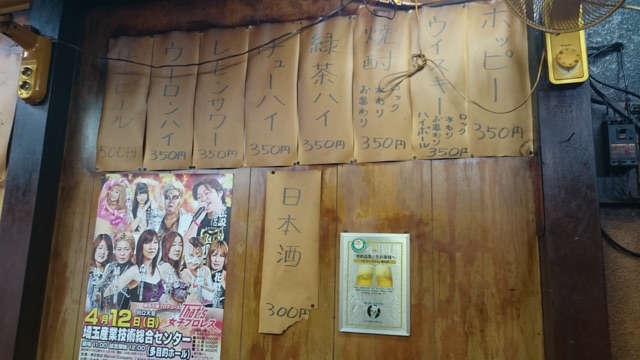 ホッピー
350円
ウイスキー
ロック
水わり
お湯わり
ハイボール
350円
焼酎
ロック
水わり
お湯わり
350円
緑茶ハイ
350円
チューハイ
350円
レモンサワー
350円
ウーロンハイ
350円
生ビール
500円
日本酒
300円
4月12日(日)
That's
女子プロレス
埼玉産業技術総合センター
(多目的ホール)
開場 11:00 試合開始 12:00